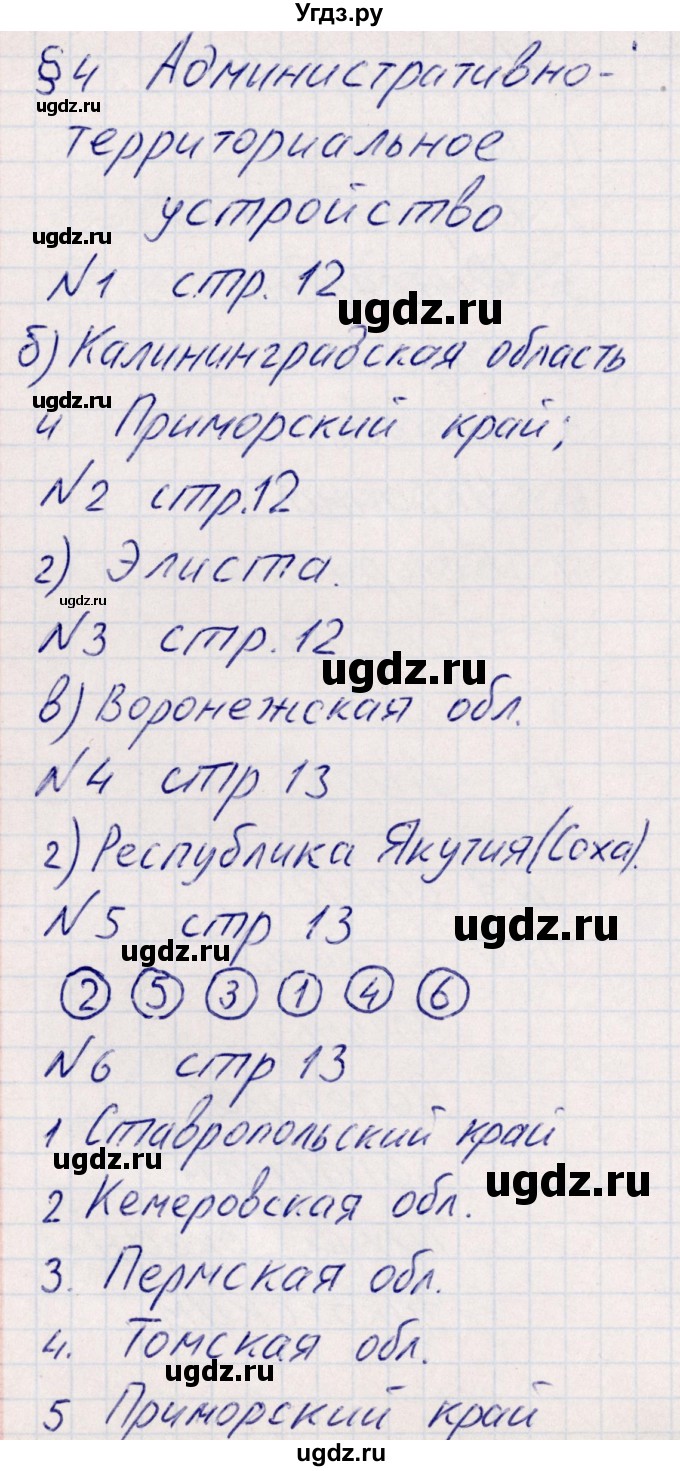 Угдз.ру
§4 Административно-
территориальное
устройство
№1 стр. 12
б) Калининградская область
и Приморский край;
№2 стр.12
г) Элиста.
№3 стр. 12
в) Воронежская обл.
№4 стр 13
г) Республика Якутия(Соха).
№5 стр 13
2 5 3 1 4 6
№6 стр 13
1 Ставропольский край
2 Кемеровская обл.
3. Пермская обл.
4. Томская обл.
5 Приморский край
ugdz.ru
ugdz.ru
ugdz.ru
ugdz.ru
ugdz.ru
ugdz.ru
ugdz.ru
ugdz.ru
ugdz.ru
ugdz.ru
ugdz.ru
ugdz.ru
ugdz.ru